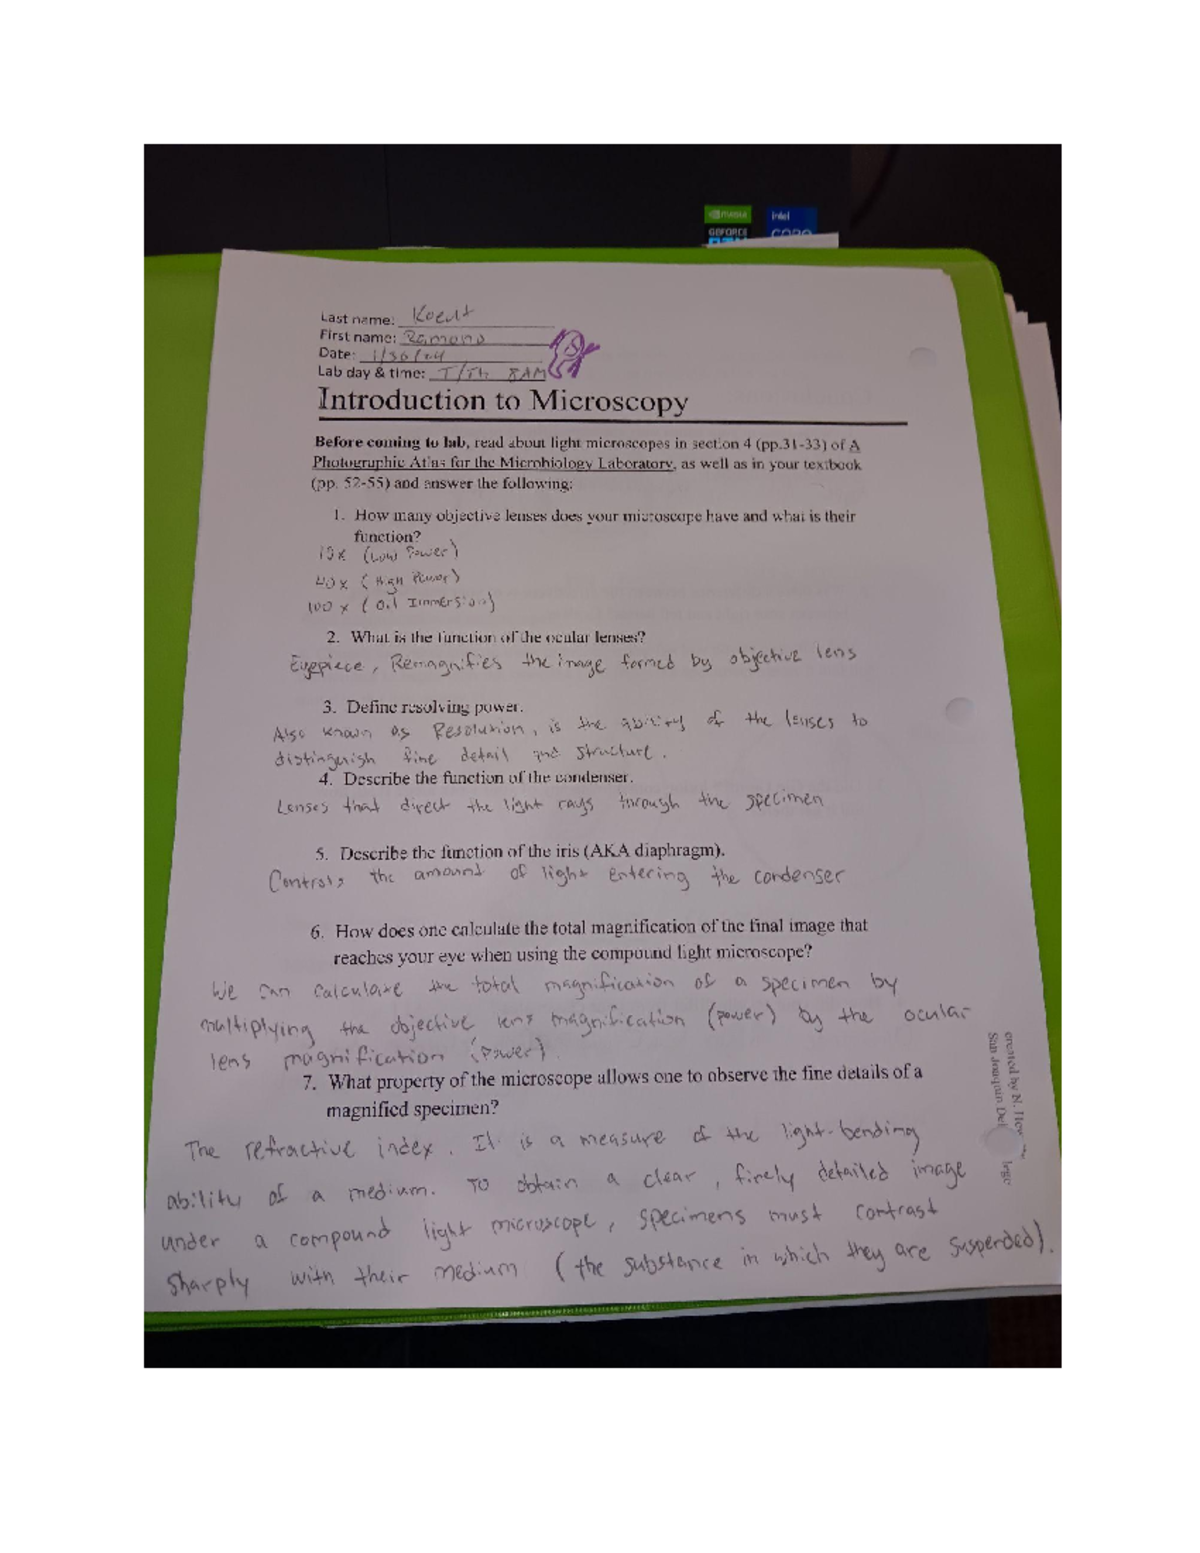 NVIDIA
intel
GEFORCE
CORE
Last name:
First name:
Date: 1/30/24
Lab day & time: T/Th 8AM
Introduction to Microscopy
Before coming to lab, read about light microscopes in section 4 (pp.31-33) of A
Photographic Atlas for the Microbiology Laboratory, as well as in your textbook
(pp. 52-55) and answer the following:
1. How many objective lenses does your microscope have and what is their
function?
10x (Low Power)
40x (High Power)
100x (Oil Immersion)
2. What is the function of the ocular lenses?
Eyepiece, Remagnifies the image formed by objective lens
3. Define resolving power.
Also known as Resolution, is the ability of the lenses to
distinguish fine detail and structure.
4. Describe the function of the condenser.
Lenses that direct the light rays through the specimen
5. Describe the function of the iris (AKA diaphragm).
Controls the amount of light entering the condenser
6. How does one calculate the total magnification of the final image that
reaches your eye when using the compound light microscope?
We can calculate the total magnification of a specimen by
multiplying the objective lens magnification (power) by the ocular
lens magnification (power).
7. What property of the microscope allows one to observe the fine details of a
magnified specimen?
The refractive index. It is a measure of the light-bending
ability of a medium. To obtain a clear, finely detailed image
under a compound light microscope, specimens must contrast
sharply with their medium (the substance in which they are suspended).
created by N.
San Joaquin Del